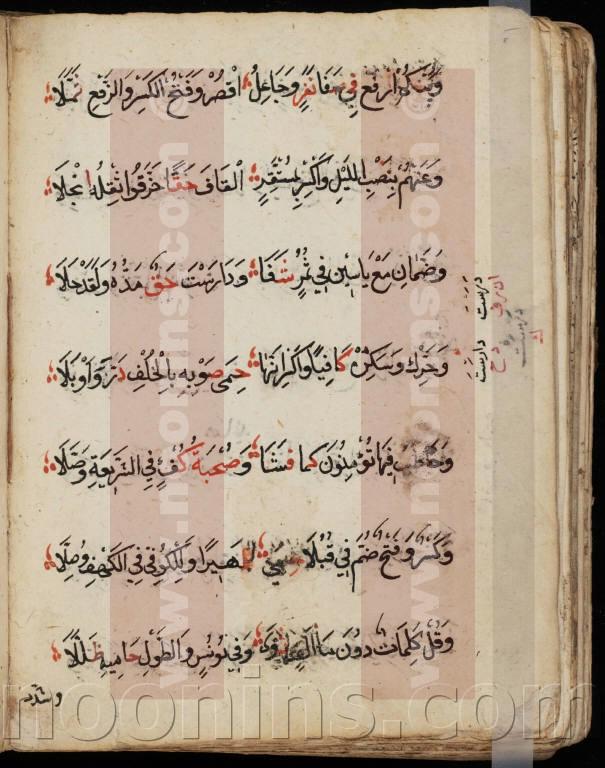 وَبَيْنَكُمُ ارْفَعْ فِي صَفَا نَفَرٍ وَجَاعِلُ اقْصُرْ وَفَتْحُ الْكَسْرِ وَالرَّفْعِ ثُمِّلَا
وَعَنْهُمْ بِنَصْبِ اللَّيْلِ وَاكْسِرْ بِمُسْتَقَرٍّ الْقَافَ حَقًّا خَرَّقُوا ثِقْلُهُ انْجَلَا
وَضَمَّانِ مَعْ يَاسِينَ فِي ثُمُرٍ شَفَا وَدَارَسْتَ حَقٌّ مَدُّهُ وَلَقَدْ حَلَا
وَحَرِّكْ وَسَكِّنْ كَافِيًا وَاكْسِرْ انَّهَا حِمَى صَوْبِهِ بِالْخُلْفِ دَرَّ وَأَوْبَلَا
وَخَاطِبْ فِيهَا تُؤْمِنُونَ كَمَا فَشَا وَصُحْبَةُ كُفْؤٍ فِي الشَّرِيعَةِ وَصَّلَا
وَكَسْرٌ وَفَتْحٌ ضُمَّ فِي قِبَلًا حَمَى ظَهِيرًا وَلِلْكُوفِيِّ فِي الْكَهْفِ وُصِّلَا
وَقُلْ كَلِمَاتٌ دُونَ مَا أَلِفٍ ثَوَى وَفِي يُونُسٍ وَالطَّوْلِ حَامِيهِ ظَلَّلَا
وشدد
درست
دارست
noonins.com
www.noonins.com
www.noonins.com